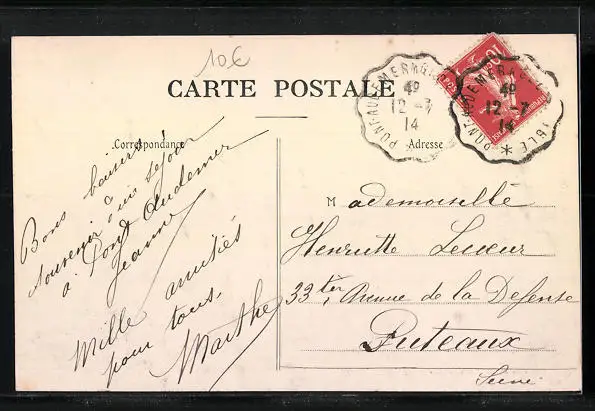 10€
CARTE POSTALE
Correspondance
Adresse
PONT AUDEMER
4º
12-7
14
PONT AUDEMER
4º
12-7
14
10
Bons baisers
souvenir d'un séjour
à Pont Audemer
Jeanne
Mille amitiés
pour tous,
Marthe
Mademoiselle
Henriette
33 ter, Avenue de la Défense
Puteaux
Seine